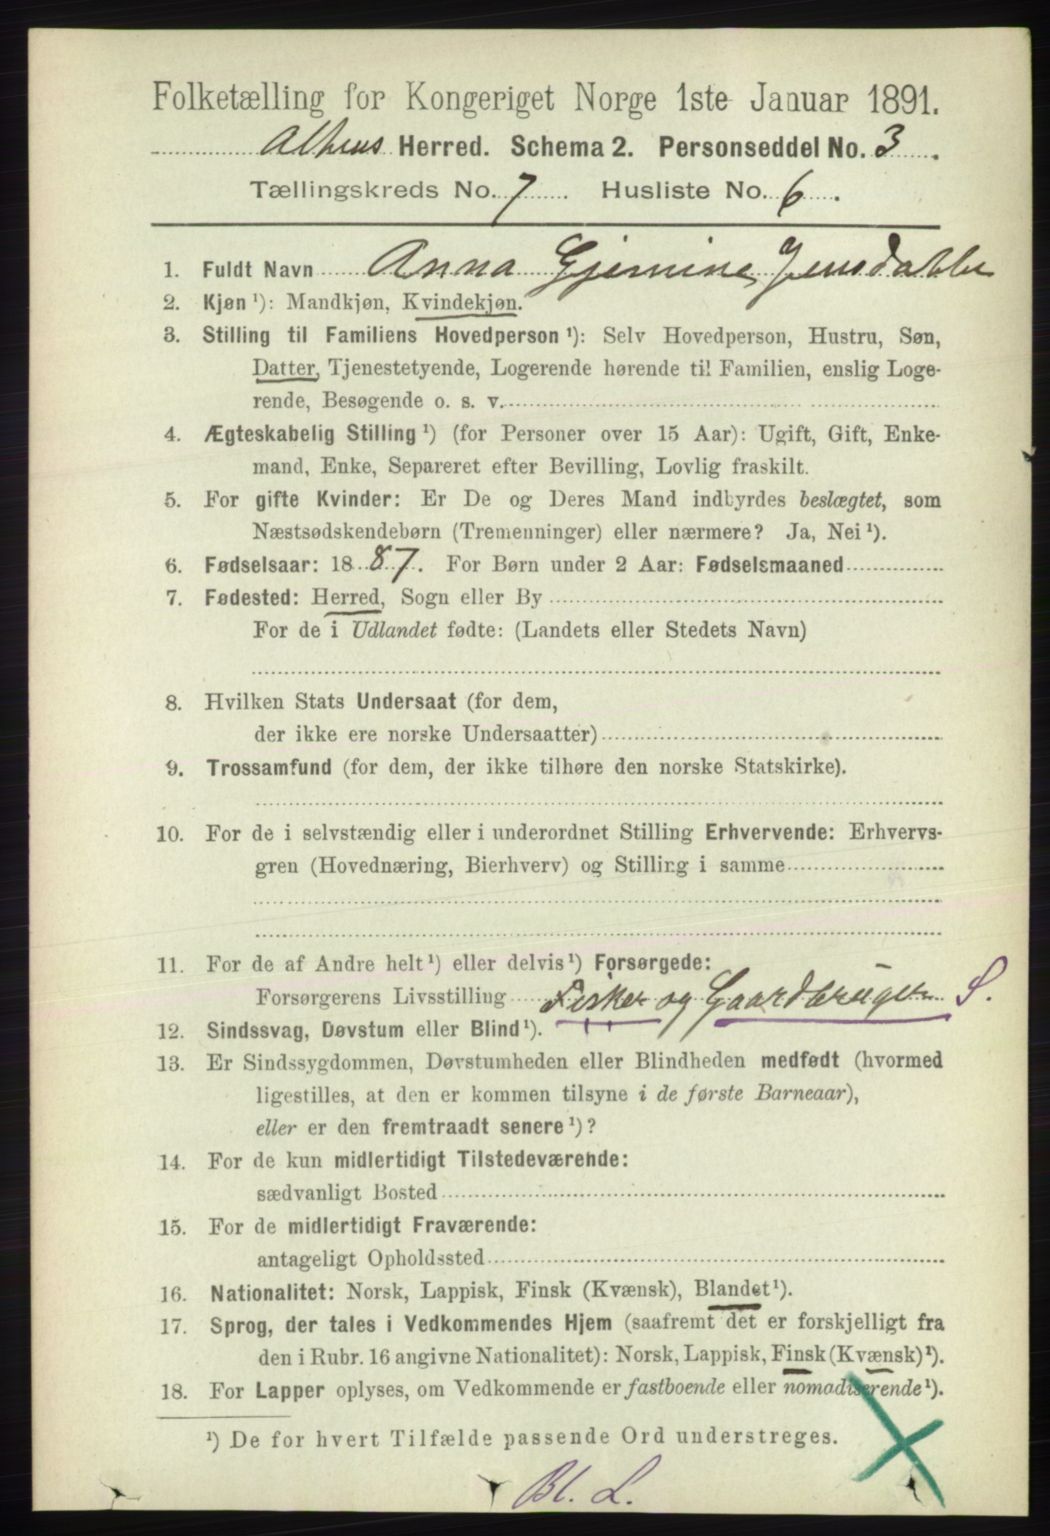 Folketælling for Kongeriget Norge 1ste Januar 1891.
Altens Herred. Schema 2. Personseddel No. 3.
Tællingskreds No. 7. Husliste No. 6.
1. Fuldt Navn Anna Gjemine Jensdatter
2. Kjøn ¹): Mandkjøn, Kvindekjøn.
3. Stilling til Familiens Hovedperson ¹): Selv Hovedperson, Hustru, Søn,
Datter, Tjenestetyende, Logerende hørende til Familien, enslig Loge-
rende, Besøgende o. s. v.
4. Ægteskabelig Stilling ¹) (for Personer over 15 Aar): Ugift, Gift, Enke-
mand, Enke, Separeret efter Bevilling, Lovlig fraskilt.
5. For gifte Kvinder: Er De og Deres Mand indbyrdes beslægtet, som
Næstsødskendebørn (Tremenninger) eller nærmere? Ja, Nei ¹).
6. Fødselsaar: 1887. For Børn under 2 Aar: Fødselsmaaned
7. Fødested: Herred, Sogn eller By
For de i Udlandet fødte: (Landets eller Stedets Navn)
8. Hvilken Stats Undersaat (for dem,
der ikke ere norske Undersaatter)
9. Trossamfund (for dem, der ikke tilhøre den norske Statskirke).
10. For de i selvstændig eller i underordnet Stilling Erhvervende: Erhvervs-
gren (Hovednæring, Bierhverv) og Stilling i samme
11. For de af Andre helt ¹) eller delvis ¹) Forsørgede:
Forsørgerens Livsstilling Fisker og Gaardbruger S.
12. Sindssvag, Døvstum eller Blind ¹).
13. Er Sindssygdommen, Døvstumheden eller Blindheden medfødt (hvormed
ligestilles, at den er kommen tilsyne i de første Barneaar),
eller er den fremtraadt senere ¹)?
14. For de kun midlertidigt Tilstedeværende:
sædvanligt Bosted
15. For de midlertidigt Fraværende:
antageligt Opholdssted
16. Nationalitet: Norsk, Lappisk, Finsk (Kvænsk), Blandet ¹).
17. Sprog, der tales i Vedkommendes Hjem (saafremt det er forskjelligt fra
den i Rubr. 16 angivne Nationalitet): Norsk, Lappisk, Finsk (Kvænsk) ¹).
18. For Lapper oplyses, om Vedkommende er fastboende eller nomadiserende ¹).
¹) De for hvert Tilfælde passende Ord understreges.
Bl. L.